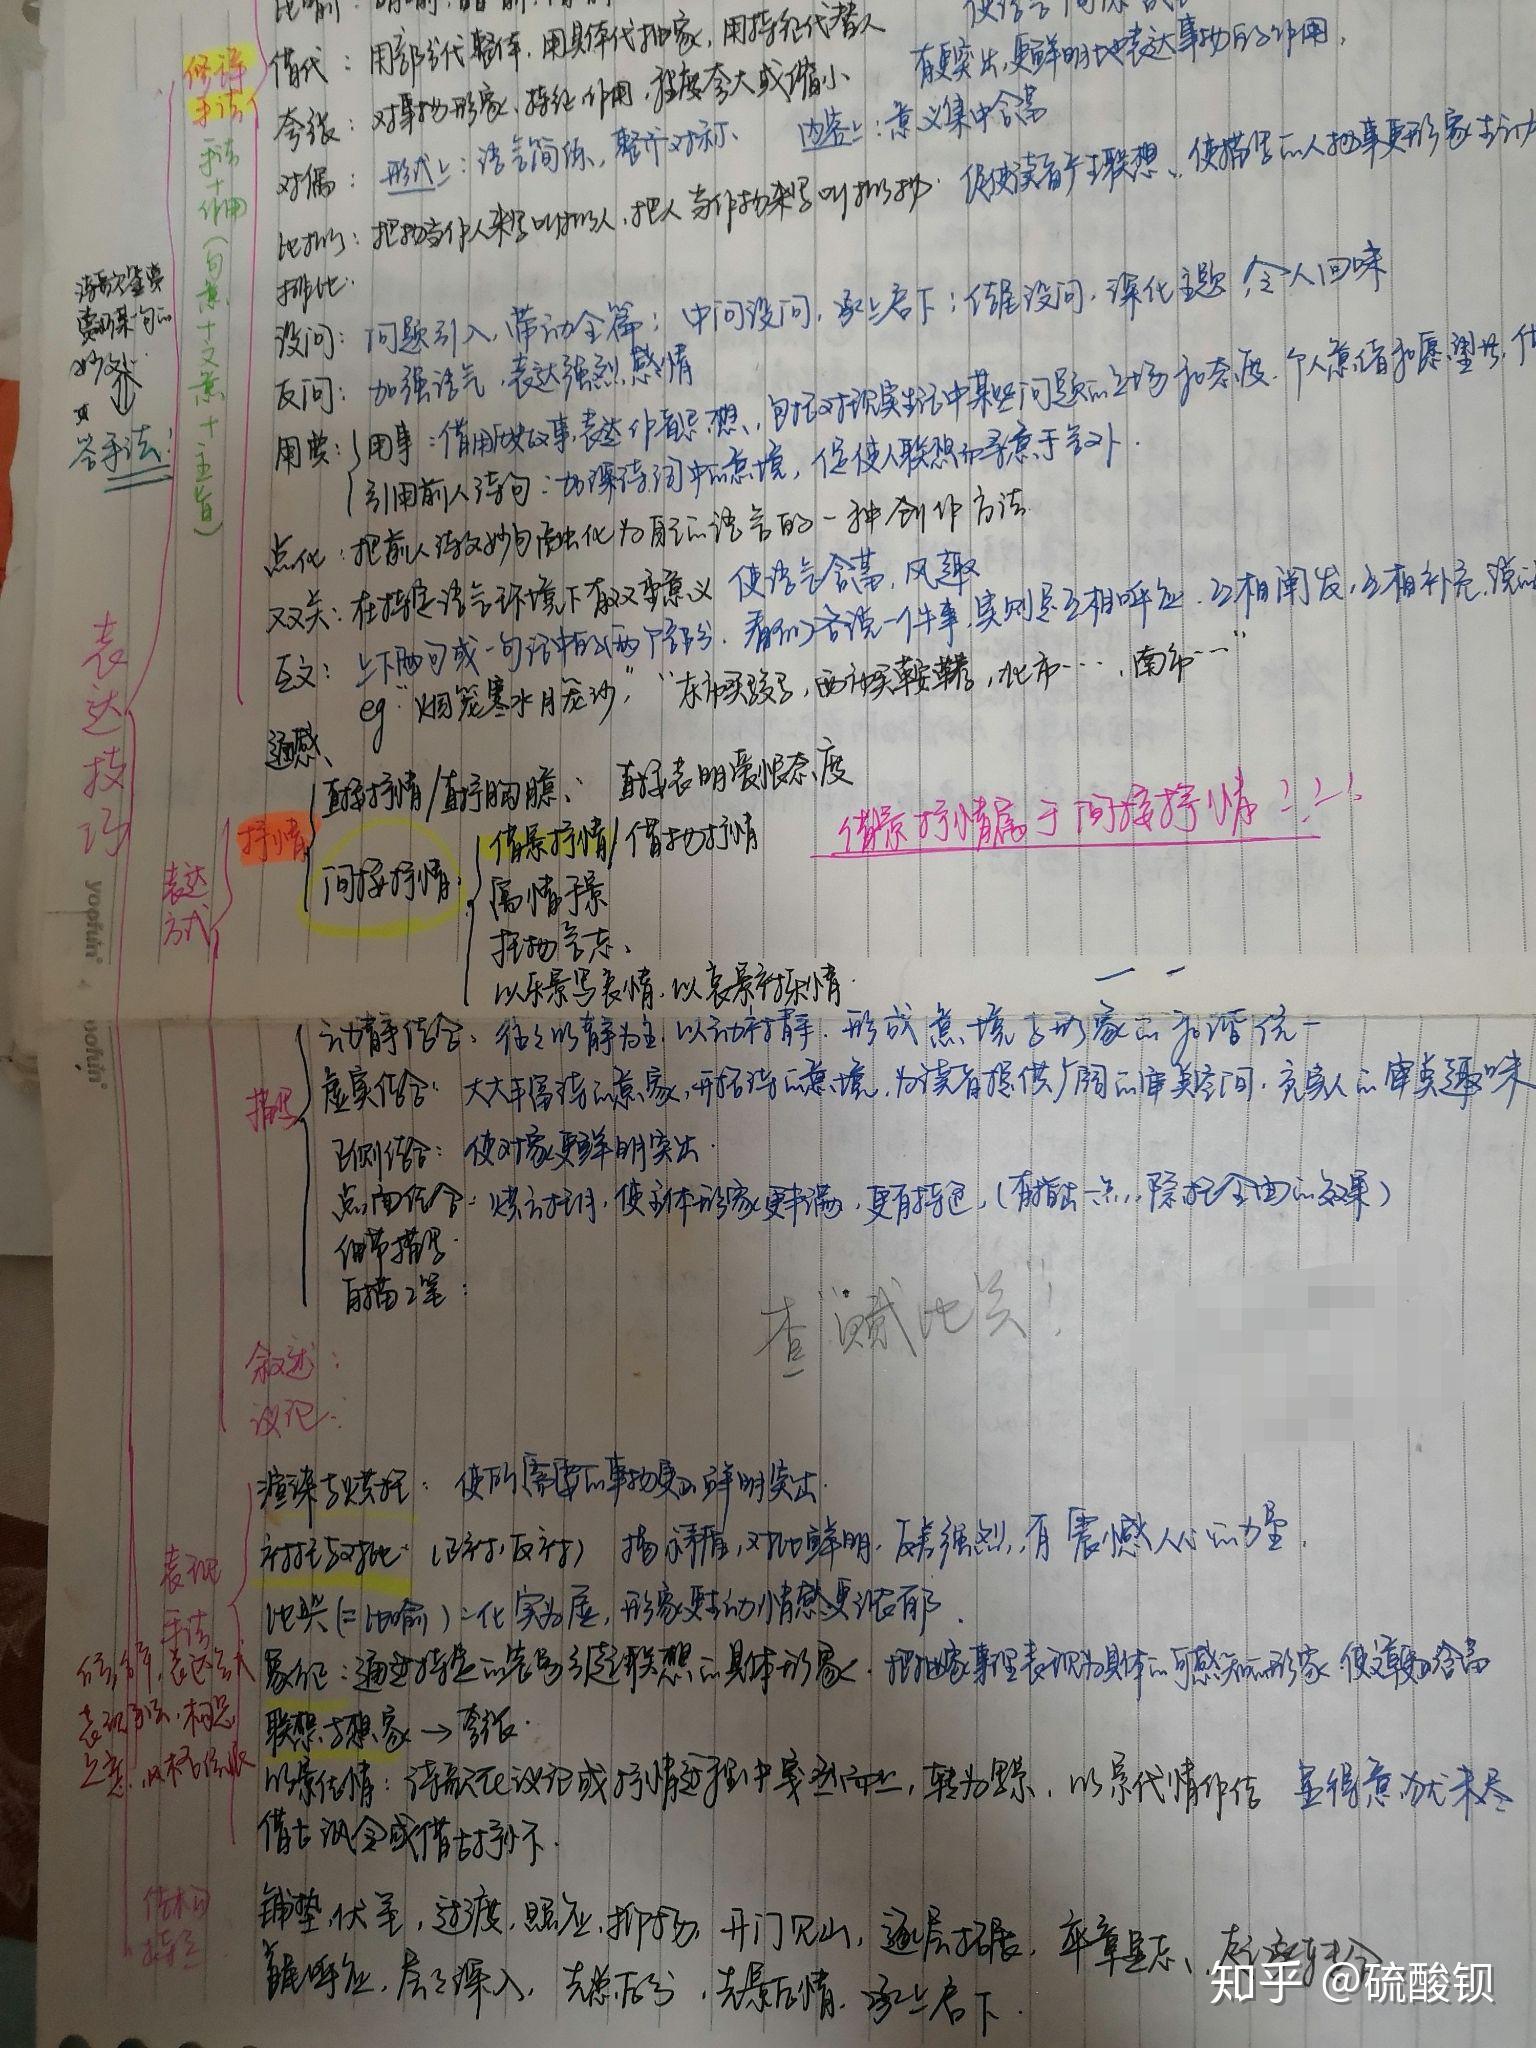 比喻：明喻，暗喻，借喻
借代：用部分代整体，用具体代抽象，用特征代替人
夸张：对事物形象、特征、作用、程度夸大或缩小 有更突出，更鲜明地表达事物的作用，
对偶：形式上：语言简练，整齐对称、 内容上：意义集中含蓄
比拟：把物当作人来写叫拟人，把人当作物来写叫拟物. 促使读者产生联想、使描写的人物事更形象生动
排比：
设问：问题引入，带动全篇；中间设问，承上启下；结尾设问，深化主题，令人回味
反问：加强语气，表达强烈感情
用典：用事：借用历史故事，表达作者思想、包括对现实生活中某些问题的立场和态度、个人意绪和愿望等，
引用前人诗句：加深诗词中的意境，促使人联想而寻意于言外.
点化：把前人诗文妙句融化为自己的语言的一种创作方法
双关：在特定语言环境下有双重意义 使语言含蓄，风趣
互文：上下两句或一句话中的两个部分，看似各说一件事，实则是互相呼应、互相阐发，互相补充，说的
eg“烟笼寒水月笼沙，”“东市买骏马，西市买鞍鞯，北市……，南市……”
通感、
修辞
手法
手法+作用（句意+文意+主旨）
诗歌鉴赏
赏析某一句的
妙处
答手法！
表达技巧
表达
方式
抒情
直接抒情/直抒胸臆、 直接表明爱恨态度
间接抒情
借景抒情/借物抒情
寓情于景
托物言志、
以乐景写哀情，以哀景衬乐情.
借景抒情属于间接抒情！！！
描写
动静结合：往往以静为主，以动衬静. 形成意境与形象的和谐统一
虚实结合：大大丰富诗的意象，开拓诗的意境，为读者提供广阔的审美空间，充实人的审美趣味
正侧结合：使对象更鲜明突出.
点面结合：烘云托月，使主体形象更丰满，更有特色，
细节描写.
白描工笔：
查“赋比兴”！
叙述：
议论：
表现
手法
渲染与烘托：使所需要的事物更加鲜明突出.
衬托与对比（正衬，反衬） 对比鲜明，反差强烈，有震憾人心的力量.
比兴（=比喻）：化实为虚，形象更生动，情感更浓郁.
象征：通过特定的容易引起联想的具体形象，把抽象事理表现为具体的可感知的形象 使文章更加含蓄
联想与想象→夸张.
以景结情：诗歌在议论或抒情过程中戛然而止，转为写景，以景代情作结 显得意犹未尽
借古讽今或借古抒怀.
结构
特点
铺垫，伏笔，过渡，照应，抑扬，开门见山，逐层拓展，卒章显志、
首尾呼应，层层深入，先总后分，先景后情，承上启下.
yoofun
知乎 @硫酸钡